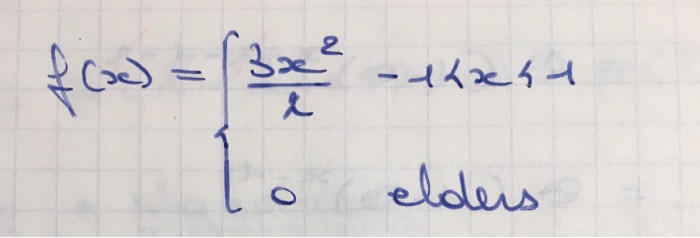 f(x) = { 3x²/2  -1<x<1
0  elders